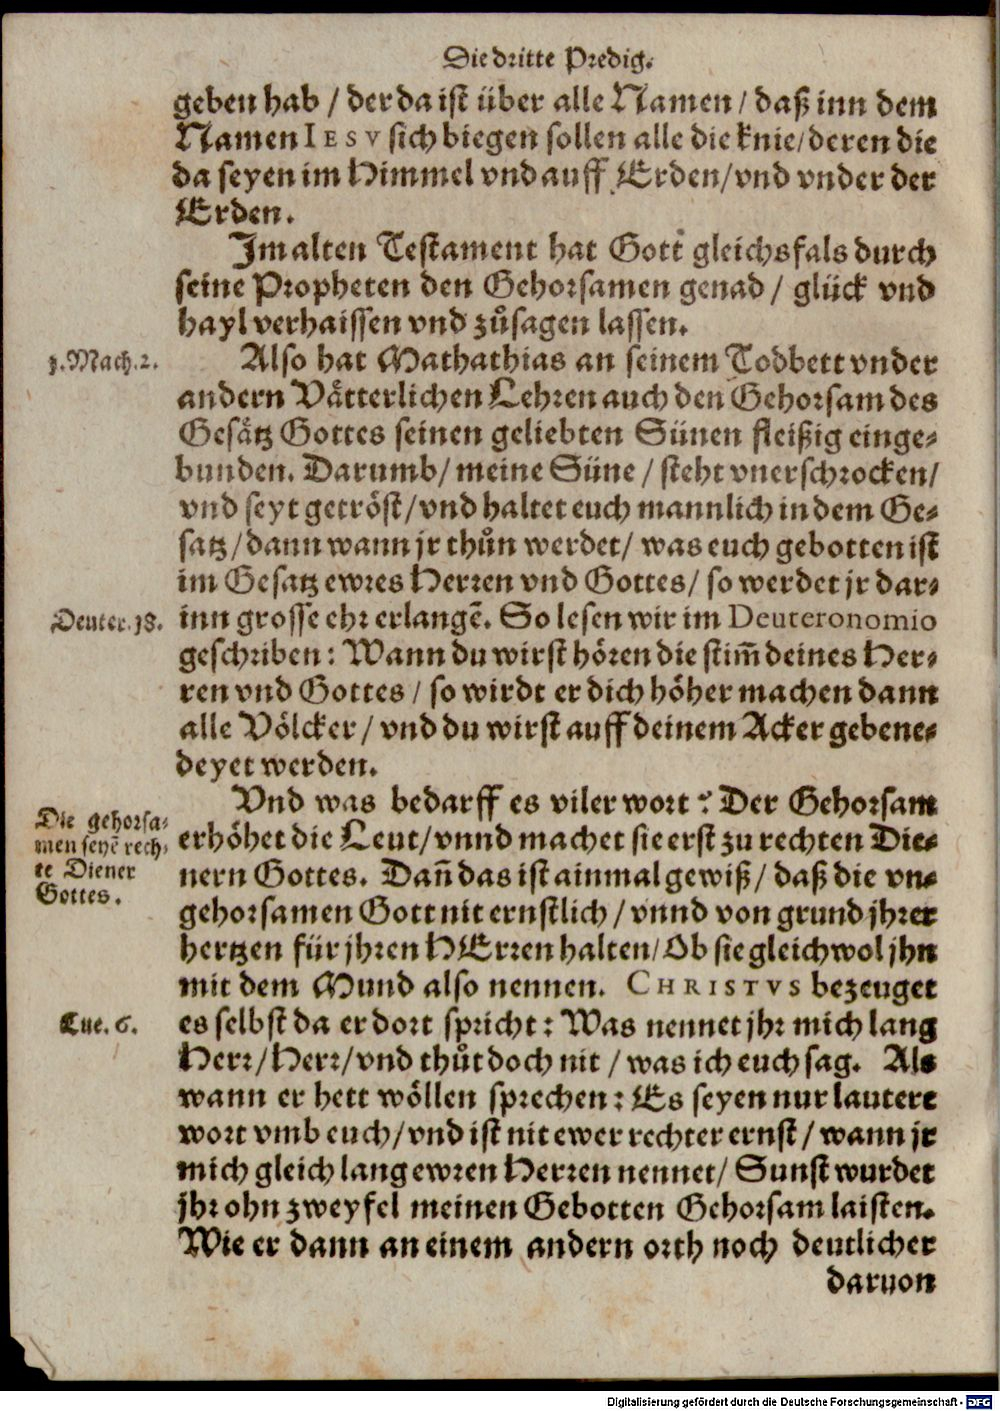 Die dritte Predig.
geben hab / der da ist über alle Namen / daß inn dem
Namen IESV sich biegen sollen alle die knie / deren die
da seyen im Himmel vnd auff Erden / vnd vnder der
Erden.
Im alten Testament hat Gott gleichsfals durch
seine Propheten den Gehorsamen genad / glück vnd
hayl verhaissen vnd zůsagen lassen.
1. Mach. 2.
Also hat Mathathias an seinem Todbett vnder
andern Vätterlichen Lehren auch den Gehorsam des
Gesätz Gottes seinen geliebten Sünen fleißig einge-
bunden. Darumb / meine Süne / steht vnerschrocken /
vnd seyt getröst / vnd haltet euch mannlich in dem Ge-
satz / dann wann jr thůn werdet / was euch gebotten ist
im Gesatz ewres Herren vnd Gottes / so werdet jr dar-
Deuter. 18.
inn grosse ehr erlangẽ. So lesen wir im Deuteronomio
geschriben: Wann du wirst hören die stim̃ deines Her-
ren vnd Gottes / so wirdt er dich höher machen dann
alle Völcker / vnd du wirst auff deinem Acker gebene-
deyet werden.
Vnd was bedarff es viler wort? Der Gehorsam
Die gehorsa-
men seyẽ rech-
te Diener
Gottes.
erhöhet die Leut / vnnd machet sie erst zu rechten Die-
nern Gottes. Dañ das ist ainmal gewiß / daß die vn-
gehorsamen Gott nit ernstlich / vnnd von grund jhrer
hertzen für jhren HErren halten / Ob sie gleichwol jhn
mit dem Mund also nennen. CHRISTVS bezeuget
Luc. 6.
es selbst da er dort spricht: Was nennet jhr mich lang
Herr / Herr / vnd thůt doch nit / was ich euch sag. Als
wann er hett wöllen sprechen: Es seyen nur lautere
wort vmb euch / vnd ist nit ewer rechter ernst / wann jr
mich gleich lang ewren Herren nennet / Sunst wurdet
jhr ohn zweyfel meinen Gebotten Gehorsam laisten.
Wie er dann an einem andern orth noch deutlicher
daruon
Digitalisierung gefördert durch die Deutsche Forschungsgemeinschaft - DFG